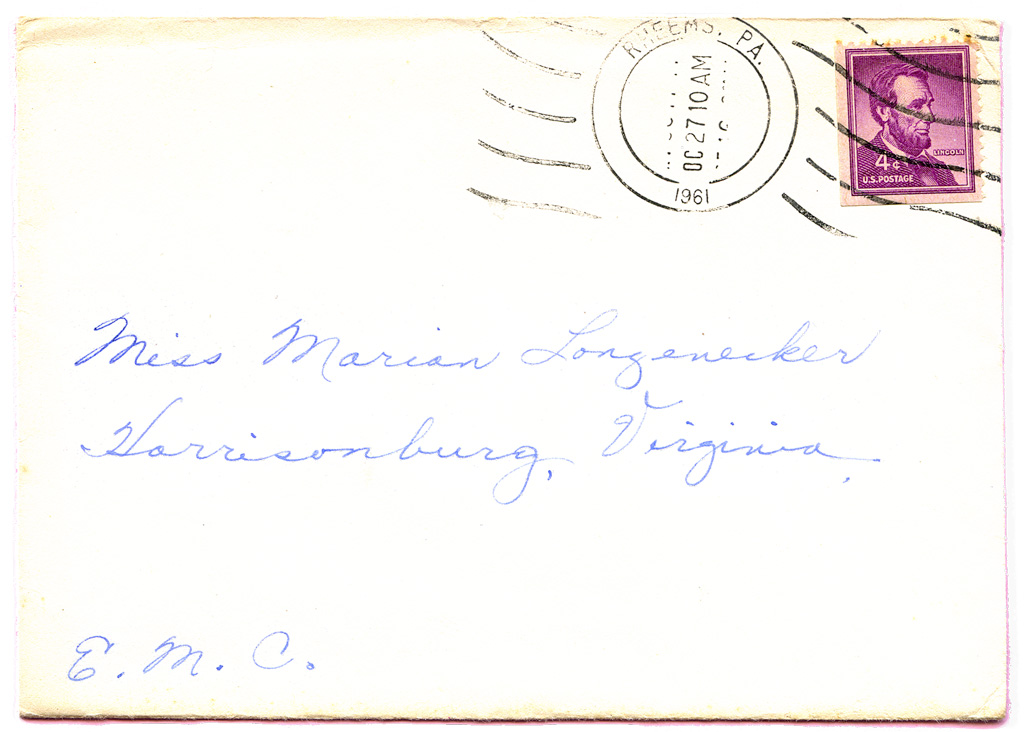 RHEEMS, PA.
OC 27 10 AM
1961
LINCOLN
4¢
U.S. POSTAGE
Miss Marian Longenecker
Harrisonburg, Virginia,
E. M. C.